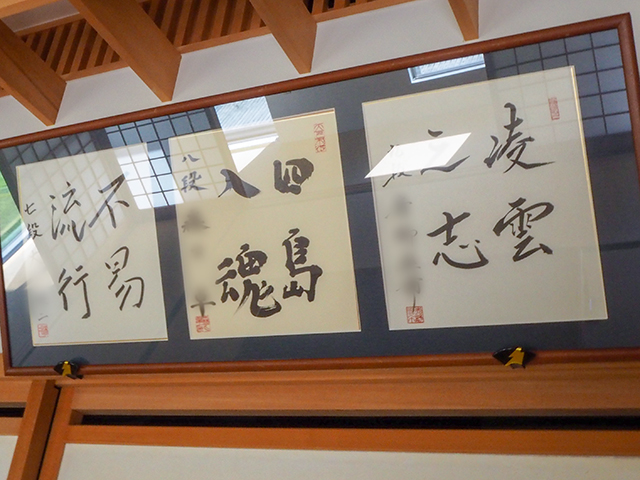 凌雲
之志
四島
入魂
八段
不易
流行
七段